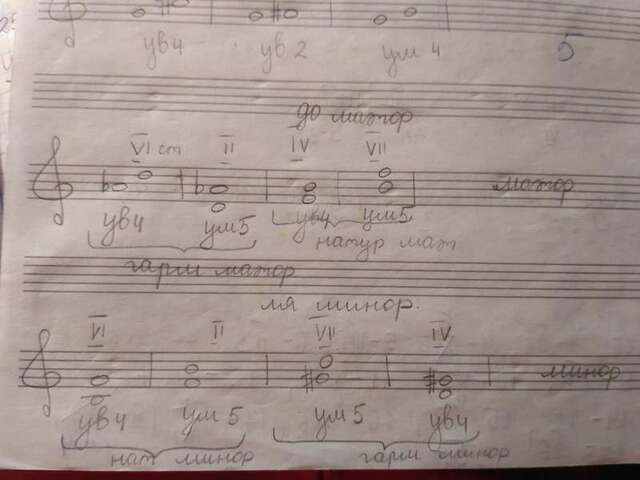 ув4 ув2 ум4 5
до мажор
VI ст II IV VII
мажор
ув4 ум5 ув4 ум5
натур маж
гарм мажор
ля минор.
VI II VII IV
минор
ув4 ум5 ум5 ув4
нат минор гарм минор